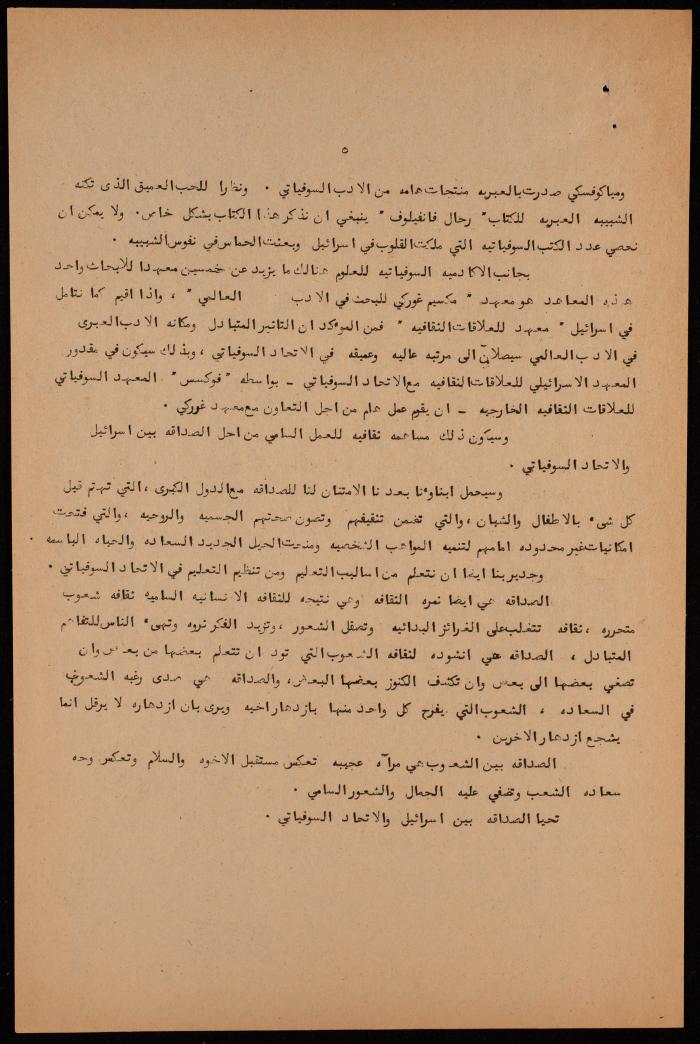 ٥
ومياكوفسكي صدرت بالعبريه منتجات هامه من الادب السوفياتي . ونظرا للحب العميق الذى تكنه
الشبيبه العبريه للكتاب " رجال فانفيلوف " ينبغي ان نذكر هذا الكتاب بشكل خاص . ولا يمكن ان
نحصي عدد الكتب السوفياتيه التي ملكت القلوب في اسرائيل وبعثت الحماس في نفوس الشبيبه .
بجانب الاكادميه السوفياتيه للعلوم هنالك ما يزيد عن خمسين معهدا للابحاث واحد
هذه المعاهد هو معهد " مكسيم غوركي للبحث في الادب العالمي " ، واذا اقيم كما نتامل
في اسرائيل " معهد للعلاقات الثقافيه " فمن الموكد ان التاثير المتبادل ومكانه الادب العبرى
في الادب العالمي سيصلان الى مرتبه عاليه وعميقه في الاتحاد السوفياتي ، وبذلك سيكون في مقدور
المعهد الاسرائيلي للعلاقات الثقافيه مع الاتحاد السوفياتي - بواسطه " فوكسس " المعهد السوفياتي
للعلاقات الثقافيه الخارجيه - ان يقيم عمل هام من اجل التعاون مع معهد غوركي .
وسيكون ذلك مساهمه ثقافيه للعمل السامي من اجل الصداقه بين اسرائيل
والاتحاد السوفياتي .
وسيحمل ابناؤنا بعدنا الامتنان لنا للصداقه مع الدول الكبرى ، التي تهتم قبل
كل شيء بالاطفال والشبان ، والتي تضمن تثقيفهم وتصون صحتهم الجسميه والروحيه ، والتي فتحت
امكانيات غير محدوده امامهم لتنميه المواهب الشخصيه ومنحت الجيل الجديد السعاده والحياه الباسمه .
وجدير بنا ايضا ان نتعلم من اساليب التعليم ومن تنظيم التعليم في الاتحاد السوفياتي .
الصداقه هي ايضا ثمره الثقافه وهي نتيجه للثقافه الانسانيه الساميه ثقافه شعوب
متحرره ، ثقافه تتغلب على الغرائز البدائيه وتصقل الشعور ، وتزيد الفكر ثروه وتهيء الناس للتفاهم
المتبادل ، الصداقه هي انشوده لثقافه الشعوب التي تود ان تتعلم بعضها من بعض وان
تصغي بعضها الى بعض وان تكتشف الكنوز بعضها البعض ، والصداقه هي صدى رغبه الشعوب
في السعاده ، الشعوب التي يفرح كل واحد منها بازدهار اخيه ويرى بان ازدهاره لا يرقل انما
يشجع ازدهار الاخرين .
الصداقه بين الشعوب هي مرآه عجيبه تعكس مستقبل الاخوه والسلام وتعكس وحه
سعاده الشعب وتضفي عليه الجمال والشعور السامي .
تحيا الصداقه بين اسرائيل والاتحاد السوفياتي .